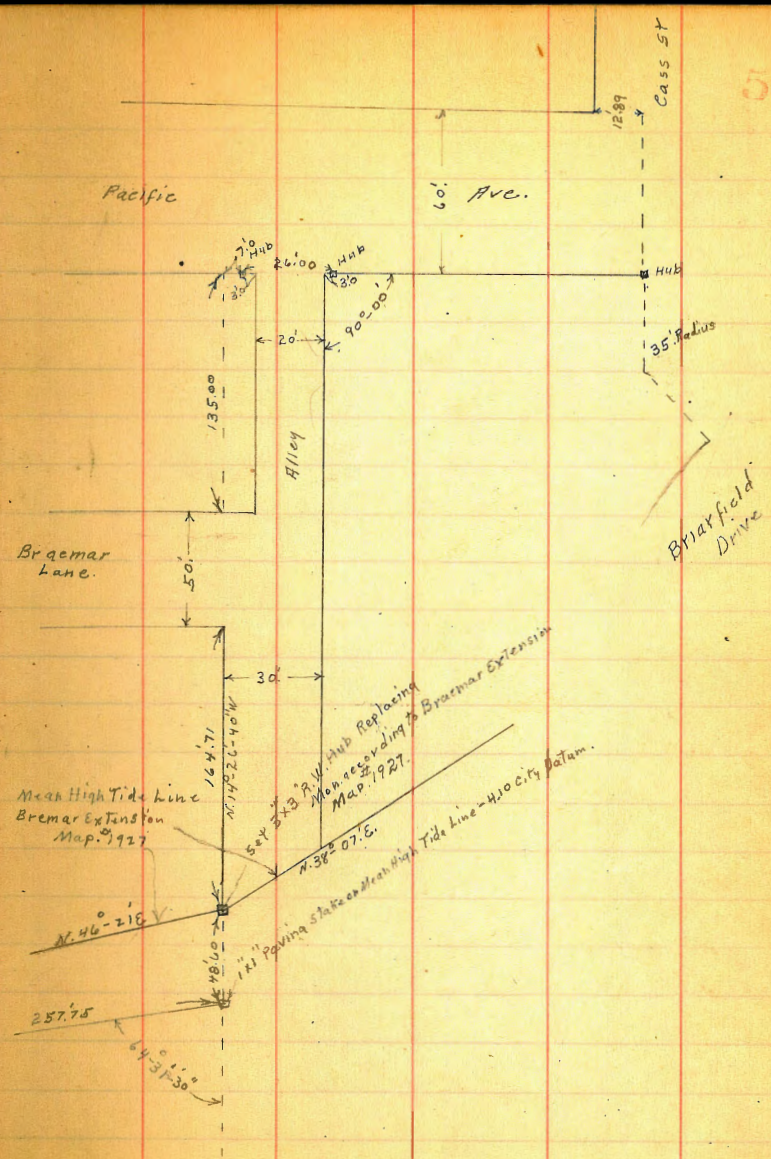 5
Cass St
12.89
Pacific Ave.
60.'
7.'0
Hub
26.'00
Hub
3.'0
3.'0
90°-00'
Hub
20'
35' Radius
135.00
Alley
Briarfield
Drive
Braemar
Lane.
50.'
30.'
164.'71
N.14°-26'-40"W
Set 3"x3" R.W. Hub Replacing
Mon. according to Braemar Extension
Map. #1927.
Mean High Tide Line
Bremar Extension
Map. #1927
N.38°-07'.E.
1"x1" Paving Stake on Mean High Tide Line - 4.10 City Datum.
N.46°-21'E
48.'60
257.'75
64°-31'-30"